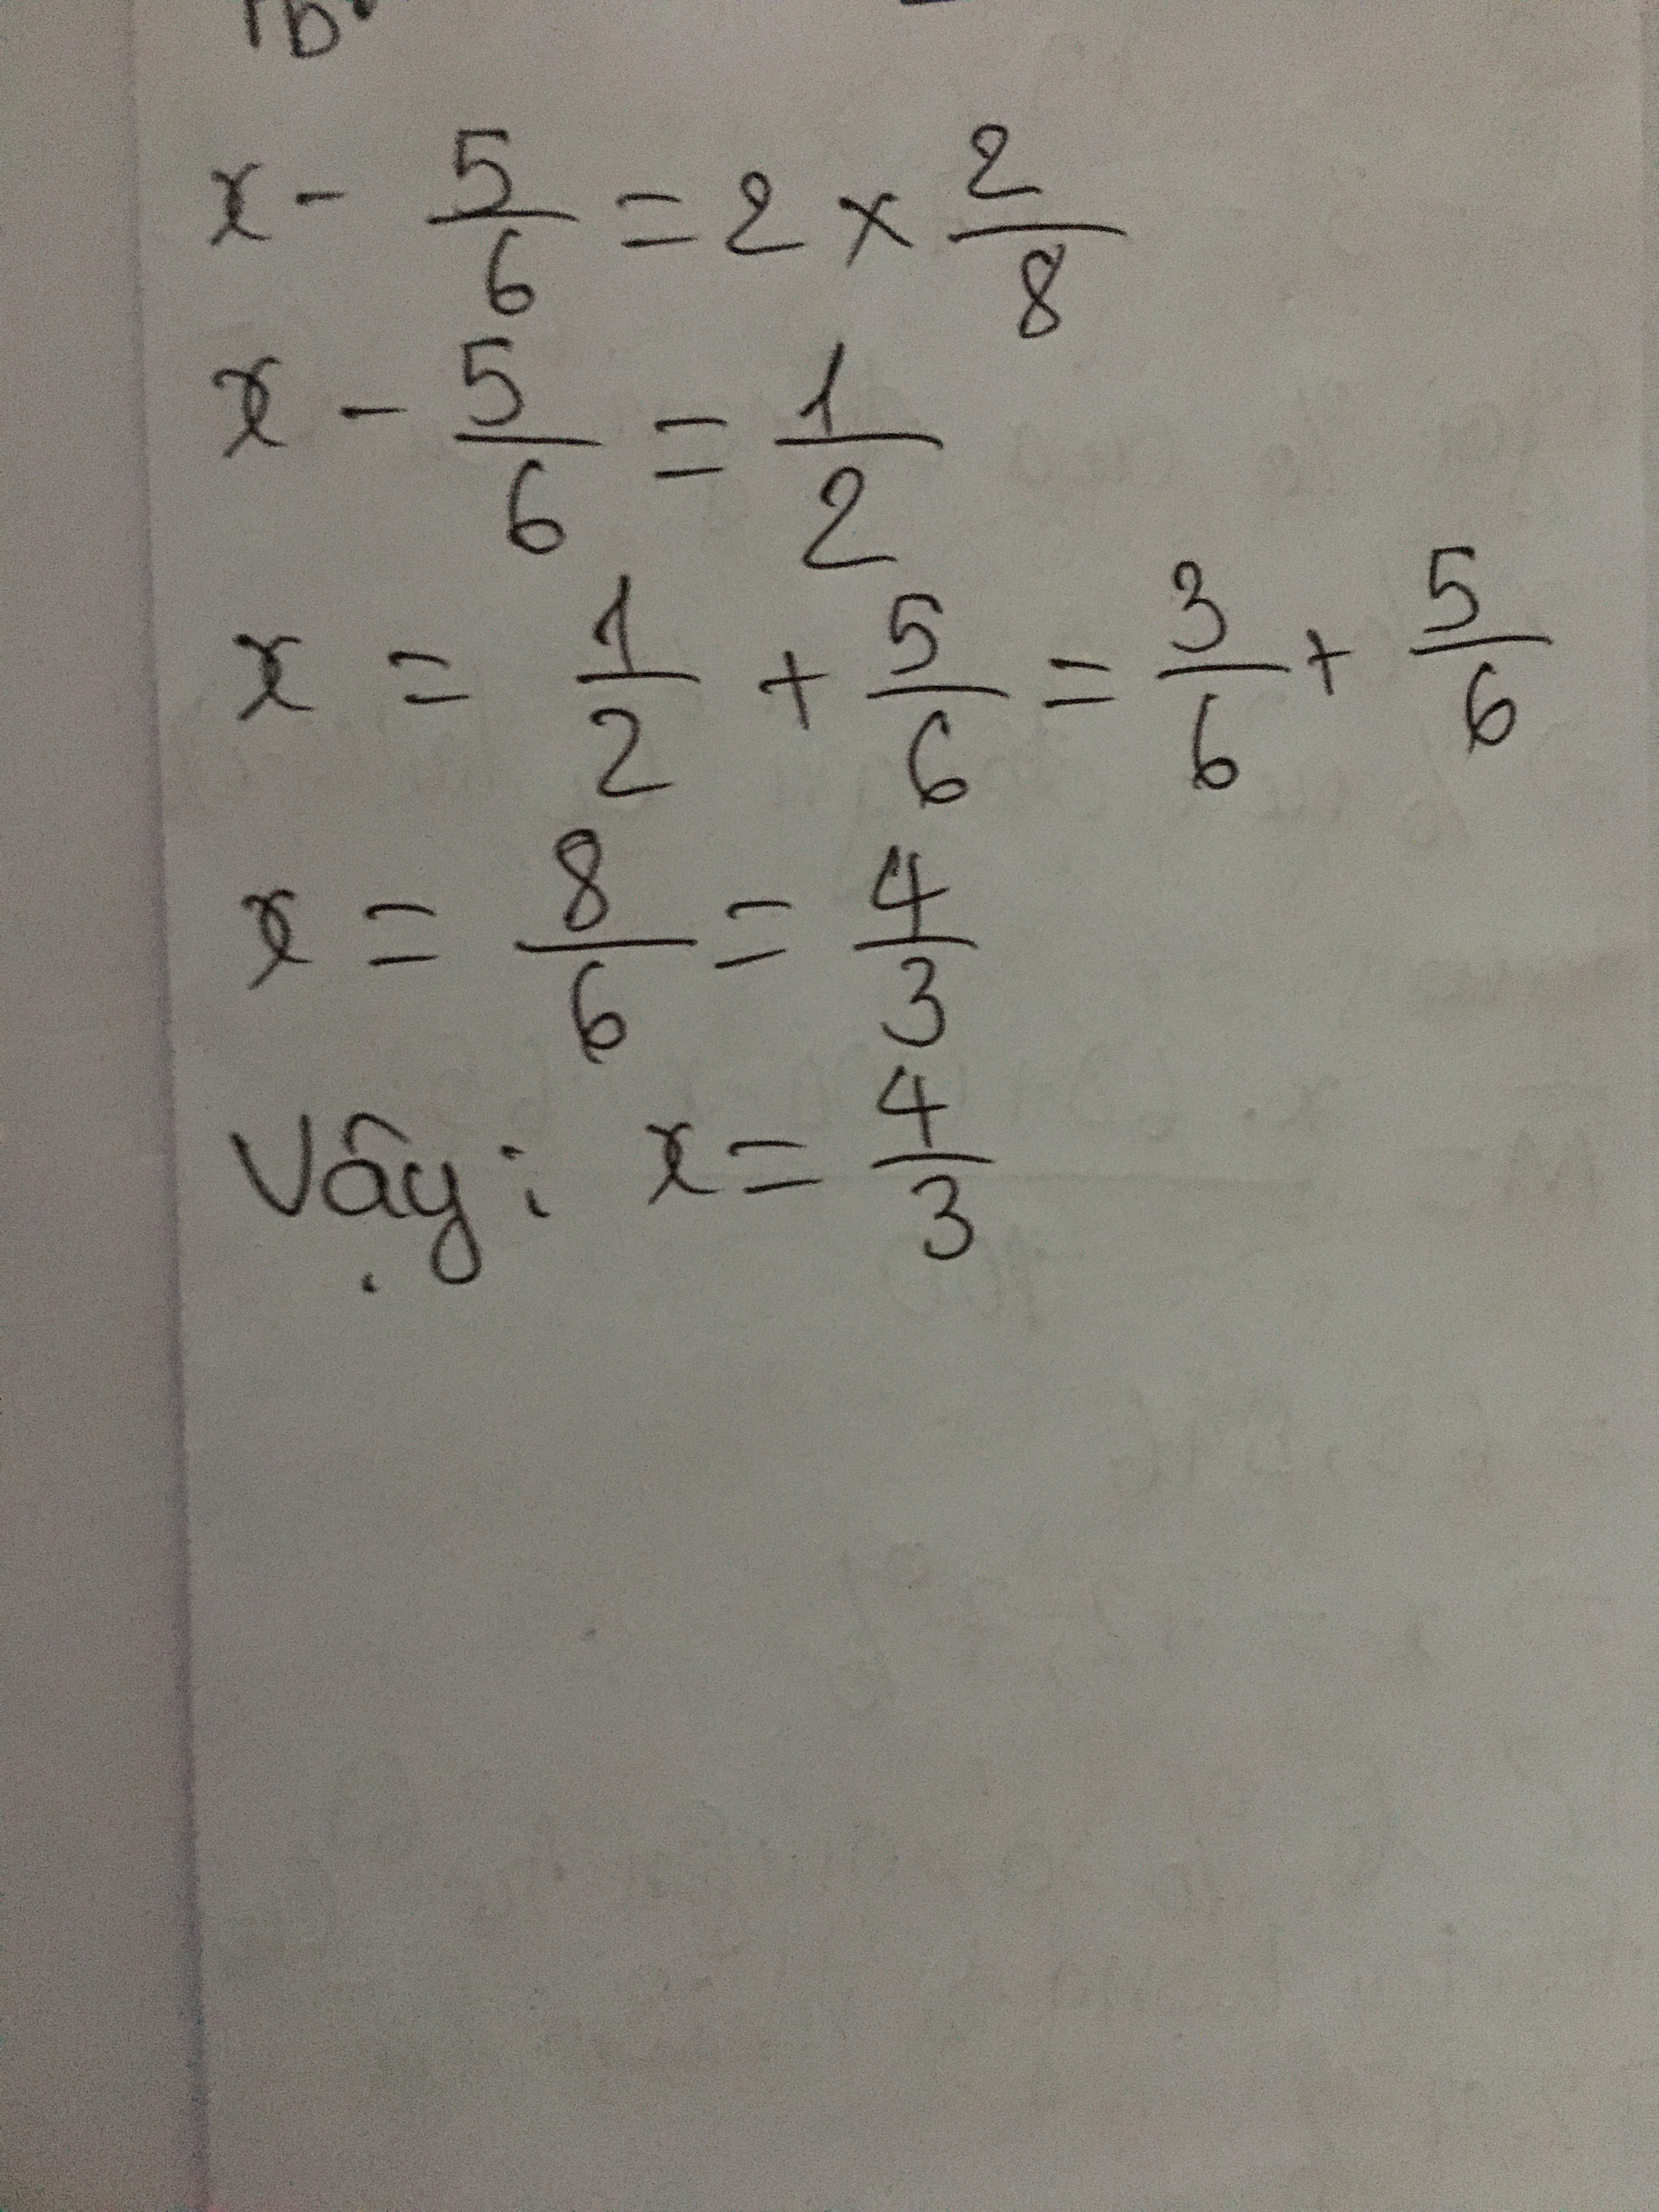 1b.
x - 5/6 = 2 × 2/8
x - 5/6 = 1/2
x = 1/2 + 5/6 = 3/6 + 5/6
x = 8/6 = 4/3
Vậy: x = 4/3